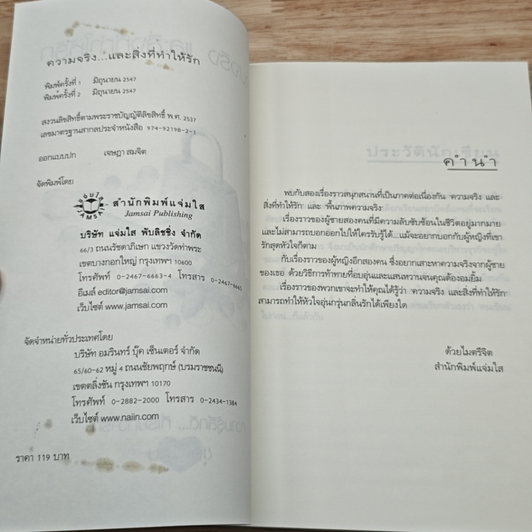 ความจริง...และสิ่งที่ทำให้รัก
พิมพ์ครั้งที่ 1 มิถุนายน 2547
พิมพ์ครั้งที่ 2 มิถุนายน 2547
สงวนลิขสิทธิ์ตามพระราชบัญญัติลิขสิทธิ์ พ.ศ. 2537
เลขมาตรฐานสากลประจำหนังสือ 974-92198-2-1
ออกแบบปก เจษฎา สมจิต
จัดพิมพ์โดย
สำนักพิมพ์แจ่มใส
Jamsai Publishing
บริษัท แจ่มใส พับลิชชิ่ง จำกัด
66/3 ถนนรัชดาภิเษก แขวงวัดท่าพระ
เขตบางกอกใหญ่ กรุงเทพฯ 10600
โทรศัพท์ 0-2467-6663-4 โทรสาร
อีเมล์ editor@jamsai.com
เว็บไซต์ www.jamsai.com
จัดจำหน่ายทั่วประเทศโดย
บริษัท อมรินทร์ บุ๊ค เซ็นเตอร์ จำกัด
65/60-62 หมู่ 4 ถนนชัยพฤกษ์ (บรมราชชนนี)
เขตตลิ่งชัน กรุงเทพฯ 10170
โทรศัพท์ 0-2882-2000 โทรสาร 0-2434-1384
เว็บไซต์ www.naiin.com
ราคา 119 บาท
คำนำ
พบกับสองเรื่องราวสนุกสนานที่เป็นภาคต่อเนื่องกัน 'ความจริง และ
สิ่งที่ทำให้รัก' และ 'พื้นภาพความจริง'
เรื่องราวของผู้ชายสองคนที่มีความลับซับซ้อนในชีวิตอยู่มากมาย
และไม่สามารถบอกออกไปให้ใครรับรู้ได้...แม้จะอยากบอกกับผู้หญิงที่เขา
รักสุดหัวใจก็ตาม
กับเรื่องราวของผู้หญิงอีกสองคน ซึ่งอยากเสาะหาความจริงจากผู้ชาย
ของเธอ ด้วยวิธีการท้าทายที่อบอุ่นและแสนหวานจนคุณต้องอมยิ้ม
เรื่องราวของพวกเขาจะทำให้คุณได้รู้ว่า 'ความจริง และสิ่งที่ทำให้รัก'
สามารถทำให้หัวใจอุ่นกรุ่นกลิ่นรักได้เพียงใด
ด้วยไมตรีจิต
สำนักพิมพ์แจ่มใส